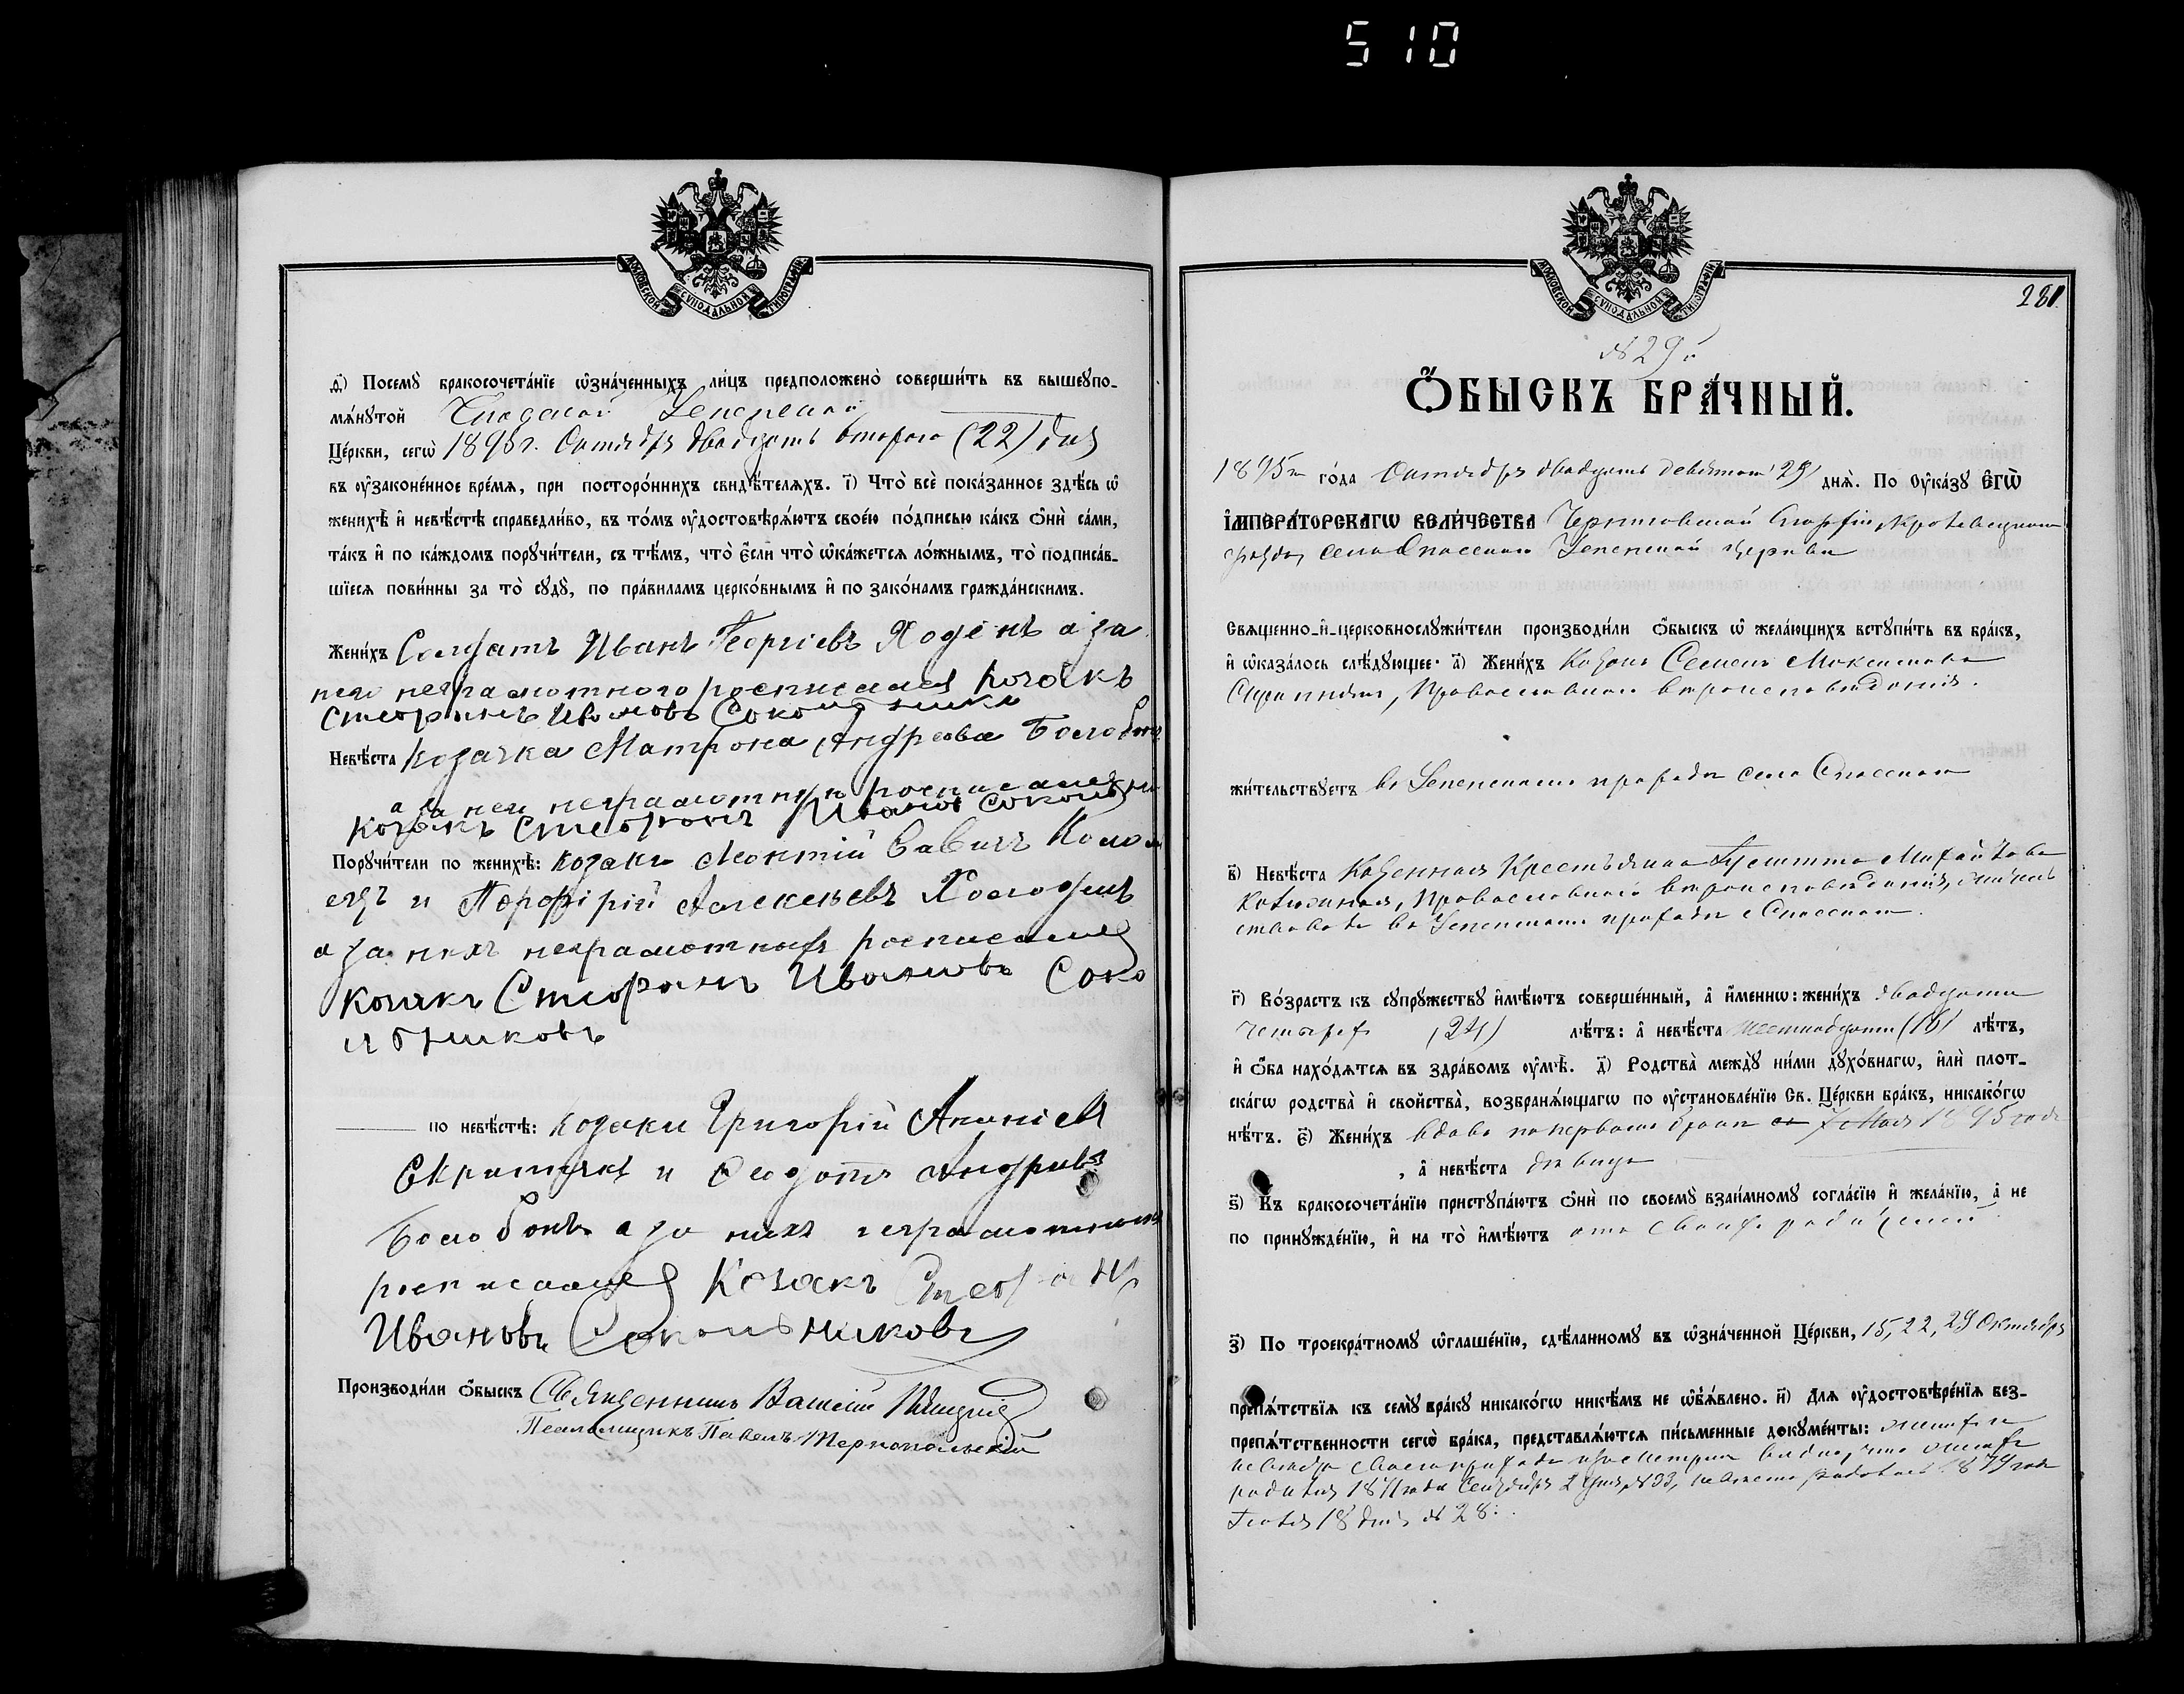 510
МОСКОВСКОЙ СѴНОДАЛЬНОЙ ТИПОГРАФІИ
ѳ҃) Посемꙋ̀ бракосочета́нїе ѡ҆зна́ченныхъ ли́цъ предположено̀ соверши́ть въ вышеꙋпо-
мѧ́нꙋтой Спасской Успенской
Це́ркви, сегѡ̀ 1895 г. Октября двадцать второго (22) дня
въ ᲂу҆законе́нное вре́мѧ, при посторо́ннихъ свидѣ́телѧхъ. і҃) Что̀ всѐ пока́занное здѣ́сь ѡ҆
женихѣ̀ и҆ невѣ́стѣ справедли́во, въ то́мъ ᲂу҆достовѣрѧ́ютъ свое́ю по́дписью ка́къ ѻ҆нѝ са́ми,
та́къ и҆ по ка́ждомъ порꙋчи́тели, съ тѣ́мъ, что̀ є҆́сли что̀ ѡ҆ка́жетсѧ ло́жнымъ, то̀ подписа́в-
шїесѧ пови́нны за то̀ сꙋдꙋ̀, по пра́виламъ церко́внымъ и҆ по зако́намъ гражда́нскимъ.
Жени́хъ Солдатъ Иванъ Георгіевъ а за
него неграмотного росписался козакъ
Стефанъ Ивановъ Сокольниковъ
Невѣ́ста козачка Матрона Андреева
а за неи неграмотную росписался
козакъ Стефанъ Иванов
Порꙋчи́тели по женихѣ̀: козаки Леонтій Савичъ
и Порфирій Алексѣевъ Холодный
а за нихъ неграмотныхъ росписался
козакъ Стефанъ Ивановъ Соко
льниковъ
по невѣ́стѣ: козаки Григорій Ананіевъ
и Федотъ Андреевъ
а за нихъ неграмотныхъ
росписался Козакъ Стефанъ
Ивановъ Сокольниковъ
Производи́ли ѻ҆́быскъ Священникъ Василій
Псаломщикъ Павелъ Тернопольскій
МОСКОВСКОЙ СѴНОДАЛЬНОЙ ТИПОГРАФІИ
281.
№ 29й
Ѻ҆́БЫСКЪ БРА́ЧНЫЙ.
1895го го́да Октября двадцать девятого 29 днѧ̀. По ᲂу҆ка́зꙋ Є҆ГѠ̀
І҆МПЕРА́ТОРСКАГѠ ВЕЛИ́ЧЕСТВА Черниговской Епархіи, Кролевецкого
уѣзда, села Спасского Успенской церкви
Свѧще́нно-и҆-церковнослꙋжи́тели производи́ли ѻ҆́быскъ ѡ҆ жела́ющихъ встꙋпи́ть въ бра́къ,
и҆ ѡ҆каза́лось слѣ́дꙋющее: а҃) Жени́хъ Козакъ Семенъ Максимовъ
Православного вѣроисповѣданія.
жи́тельствꙋетъ въ Успенскомъ приходѣ села Спасского
в҃) Невѣ́ста Казенная Крестьянка Михайлова
Православного вѣроисповѣданія,
въ Успенскомъ приходѣ с Спасского.
г҃) Во́зрастъ къ сꙋпрꙋ́жествꙋ и҆мѣ́ютъ соверше́нный, а҆ и҆́меннѡ: жени́хъ двадцати
четырех (24) лѣ́тъ: а҆ невѣ́ста шестнадцати (16) лѣ́тъ,
и҆ ѻ҆́ба нахо́дѧтсѧ въ здра́вомъ ᲂу҆мѣ̀. д҃) Родства̀ междꙋ̀ ни́ми дꙋхо́внагѡ, и҆лѝ плот-
ска́гѡ родства̀ и҆ сво́йства̀, возбранѧ́ющагѡ по ᲂу҆становле́нїю Св. Це́ркви бра́къ, никако́гѡ
нѣ́тъ. є҃) Жени́хъ вдовъ по первомъ бракѣ 7 Мая 1895 года
, а҆ невѣ́ста дѣвица
ѕ҃) Къ бракосочета́нїю пристꙋпа́ютъ ѻ҆нѝ по своемꙋ̀ взаи́мномꙋ согла́сїю и҆ жела́нїю, а҆ не
по принꙋжде́нїю, и҆ на то̀ и҆мѣ́ютъ отъ своихъ родителей
з҃) По троекра́тномꙋ ѡ҆глаше́нїю, сдѣ́ланномꙋ въ ѡ҆зна́ченной Це́ркви, 15, 22, 29 Октября
препѧ́тствїѧ къ семꙋ̀ бра́кꙋ никако́гѡ никѣ́мъ не ѡ҆б̾ѧ́влено. и҃) Длѧ ᲂу҆достовѣре́нїѧ без-
препѧ́тственности сегѡ̀ бра́ка, представлѧ́ютсѧ пи́сьменные докꙋме́нты: жених и
невѣста своего прихода изъ метрик видно, что жених
родился 1871 года Сентября 2 дня, № 33, невѣста родилась 1879 года
18 дня № 28.